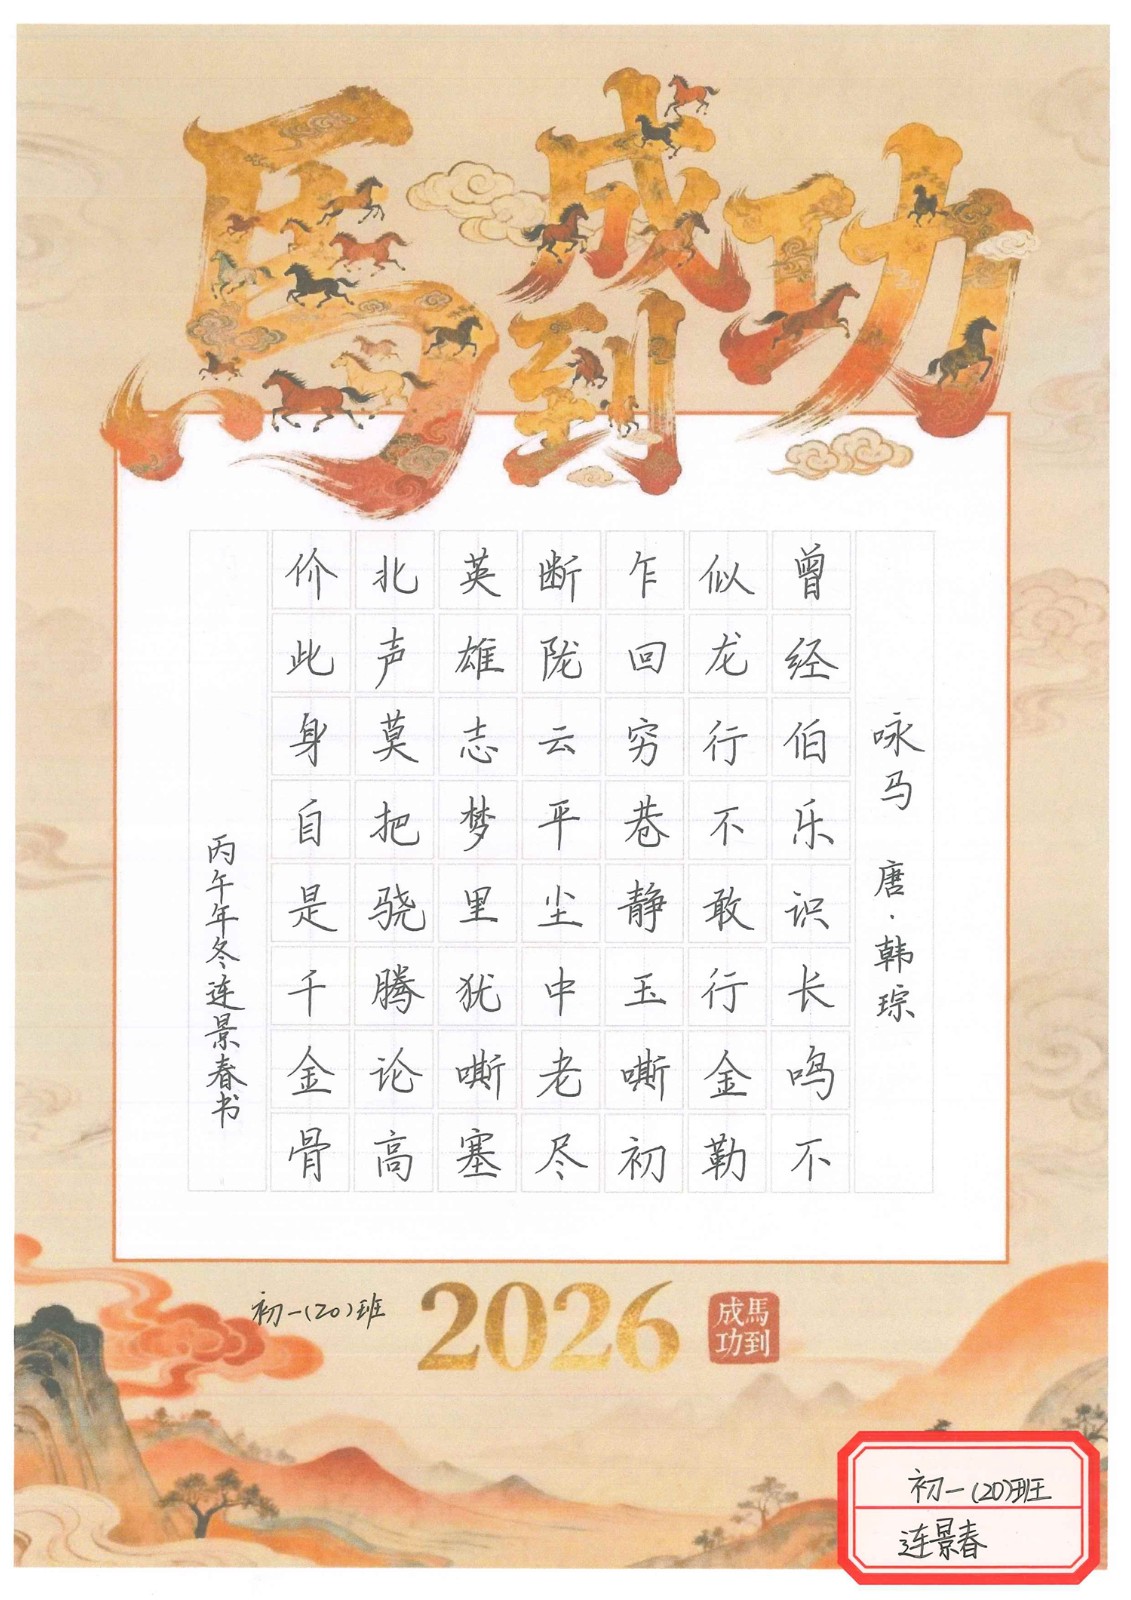 馬到成功
咏马 唐·韩琮
曾经伯乐识长鸣不
似龙行不敢行金勒
乍回穷巷静玉嘶初
断陇云平尘中老尽
英雄志梦里犹嘶塞
北声莫把骁腾论高
价此身自是千金骨
丙午年冬连景春书
初一(20)班
2026
馬到
成功
初一(20)班
连景春